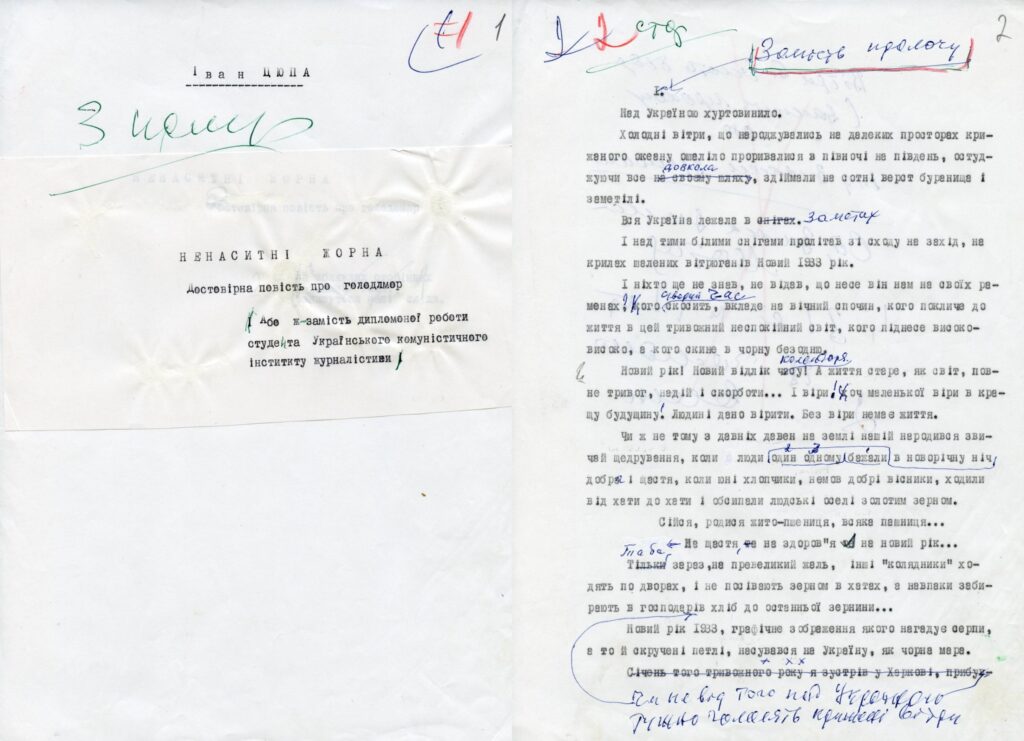 1
Іван ЦЮПА
НЕНАСИТНІ ЖОРНА
Достовірна повість про голодлмор
Або ж замість дипломоної роботи
студента Українського комуністичного
інституту журналістиви
2
2 стор
Замість прологу
І.
Над Україною хуртовинило.
Холодні вітри, що народжувались на далеких просторах кри-
жаного океану ошеліло проривалися в півночі на південь, остуд-
жуючи все на своєму шляху, здіймали на сотні верст буранища і
довкола
заметілі.
Вся Україна лежала в снігах. заметах
І над тими білими снігами пролітав зі сходу на захід, на
крилах шалених вітрюганів Новий 1933 рік.
І ніхто ще не знав, не відав, що несе він нам на своїх ра-
менах, кого скосить, вкладе на вічний спочин, кого покличе до
життя в цей тривожний неспокійний світ, кого піднесе високо-
високо, а кого скине в чорну безодню.
Новий рік! Новий відлік часу! А життя старе, як світ, пов-
не тривог, надій і скорботи... І віри! Хоч маленької віри в кра-
щу будущину! Людині дано вірити. Без віри немає життя.
Чи ж не тому з давніх давен на землі нашій народився зви-
чай щедрування, коли люди один одному бажали в новорічну ніч
добра і щастя, коли юні хлопчики, немов добрі вісники, ходили
від хати до хати і обсипали людські оселі золотим зерном.
Сійся, родися жито-пшениця, всяка пашниця...
На щастя, та на здоров"я та на новий рік...
Тільки зараз, на превеликий жаль, інші "колядники" хо-
дять по дворах, і не посівають зерном в хатах, а навпаки заби-
рають в господарів хліб до останньої зернини...
Новий рік 1933, графічне зображення якого нагадує серпи,
а то й скручені петлі, насувався на Україну, як чорна мара.
Січень того тривожного року я зустрів у Харкові, прибув-